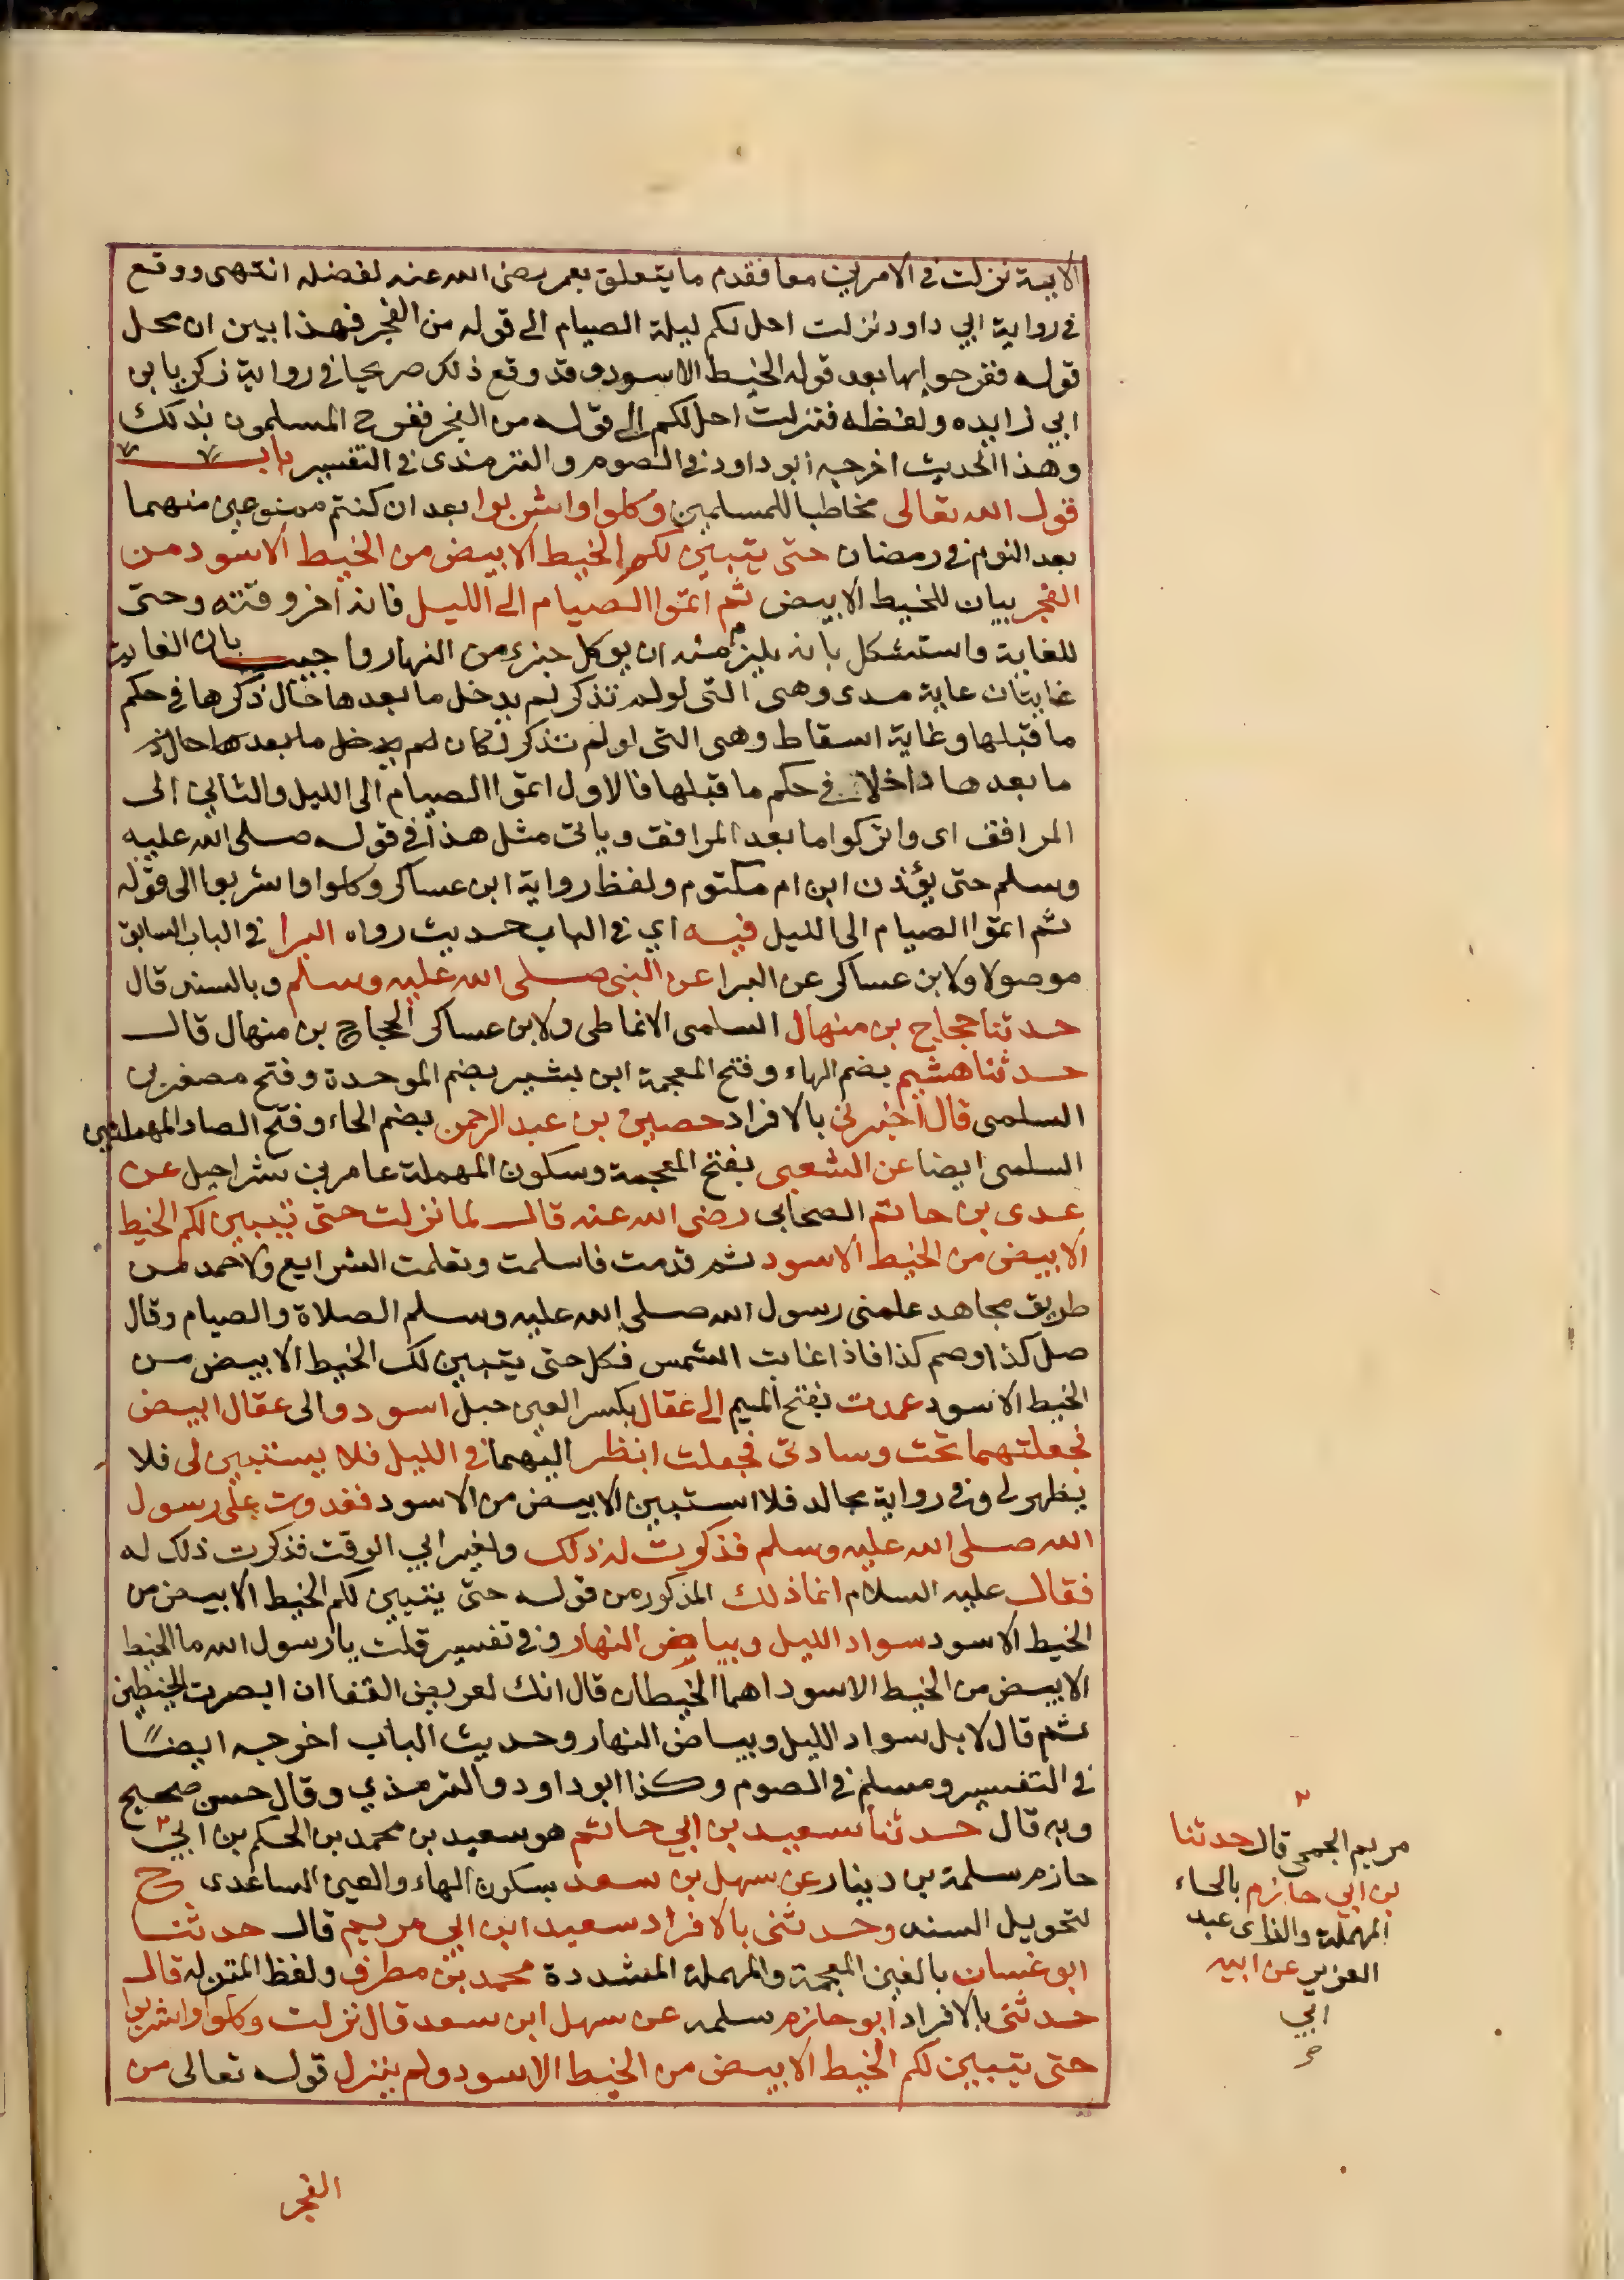 الاية نزلت في الامرين معا فقدم ما يتعلق بعمر رضى الله عنه لفضله انتهى ووقع
في رواية ابي داود نزلت احل لكم ليلة الصيام الى قوله من الفجر فهذا يبين ان محل
قوله ففرحوا بها بعد قوله الخيط الاسود وقد وقع ذلك صريحا في رواية زكريا بن
ابي زايده ولفظه فنزلت احل لكم الى قوله من الفجر ففرح المسلمون بذلك
وهذا الحديث اخرجه ابو داود في الصوم والترمذى في التفسير باب
قول الله تعالى مخاطبا للمسلمين وكلوا واشربوا بعد ان كنتم ممنوعين منهما
بعد النوم في رمضان حتى يتبين لكم الخيط الابيض من الخيط الاسود من
الفجر بيان للخيط الابيض ثم اتموا الصيام الى الليل فانه اخر وقته وحتى
للغاية واستشكل بانه يلزم منه ان يوكل جزء من النهار واجيب بان الغاية
غايتان غاية مدى وهى التى لو لم تذكر لم يدخل ما بعدها حال ذكرها في حكم
ما قبلها وغاية اسقاط وهى التى لو لم تذكر لكان لم يدخل ما بعدها حال ذ
ما بعدها داخلا في حكم ما قبلها فالاول اتموا الصيام الى الليل والثاني الى
المرافق اى واتركوا ما بعد المرافق وياتى مثل هذا في قوله صلى الله عليه
وسلم حتى يؤذن ابن ام مكتوم ولفظ رواية ابن عساكر وكلوا واشربوا الى قوله
ثم اتموا الصيام الى الليل فيه اي في الباب حديث رواه البرا في الباب السابق
موصولا ولابن عساكر عن البرا عن النبى صلى الله عليه وسلم وبالسند قال
حدثنا حجاج بن منهال السلمى الانماطى ولابن عساكر الحجاج بن منهال قال
حدثنا هشيم بضم الهاء وفتح المعجمة ابن بشير بضم الموحدة وفتح مصغرين
السلمى قال اخبرنى بالافراد حصين بن عبد الرحمن بضم الحاء وفتح الصاد المهملتين
السلمى ايضا عن الشعبى بفتح المعجمة وسكون المهملة عامر بن شراحيل عن
عدى بن حاتم الصحابى رضى الله عنه قال لما نزلت حتى يتبين لكم الخيط
الابيض من الخيط الاسود ثم قدمت فاسلمت وتعلمت الشرايع ولاحمد من
طريق مجاهد علمنى رسول الله صلى الله عليه وسلم الصلاة والصيام وقال
صل كذا وصم كذا فاذا غابت الشمس فكل حتى يتبين لك الخيط الابيض من
الخيط الاسود عمدت بفتح الميم الى عقال بكسر العين حبل اسود والى عقال ابيض
فجعلتهما تحت وسادتى فجعلت انظر اليهما في الليل فلا يستبين لى فلا
يظهر لى وفي رواية مجالد فلا استبين الابيض من الاسود فغدوت على رسول
الله صلى الله عليه وسلم فذكرت له ذلك ولغير ابي الوقت فذكرت ذلك له
فقال عليه السلام انما ذلك المذكور من قوله حتى يتبين لكم الخيط الابيض من
الخيط الاسود سواد الليل وبياض النهار وفي تفسير قلت يا رسول الله ما الخيط
الابيض من الخيط الاسود اهما الخيطان قال انك لعريض القفا ان ابصرت الخيطين
ثم قال لا بل سواد الليل وبياض النهار وحديث الباب اخرجه ايضًا
في التفسير ومسلم في الصوم وكذا ابو داود والترمذي وقال حسن صحيح
وبه قال حدثنا سعيد بن ابي حاتم هو سعيد بن محمد بن الحكم بن ابي
حازم سلمة بن دينار عن سهل بن سعد بسكون الهاء والعين الساعدى ح
لتحويل السند وحدثنى بالافراد سعيد ابن ابي مريم قال حدثنا
ابو غسان بالغين المعجمة والمهملة المشددة محمد بن مطرف ولفظ المتن له قال
حدثنى بالافراد ابو حازم سلمه عن سهل ابن سعد قال نزلت وكلوا واشربوا
حتى يتبين لكم الخيط الابيض من الخيط الاسود ولم ينزل قوله تعالى من
الفجر
مريم الجمحى قال حدثنا
بن ابي حازم بالحاء
المهملة والزاى عبد
العزيز عن ابيه
ابي